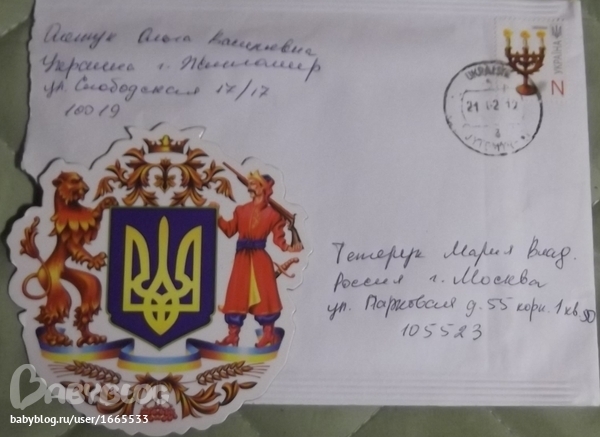 Ольга Васильевна
Украина г. Житомир
ул Слободская 17/17
10019
УКРАЇНА
N
UKRAJINA
21 02 19
Тетерук Мария Влад.
Россия г. Москва
ул. Парковая д. 55 корп. 1 кв 50
105523
BABYBLOG
babyblog.ru/user/1665533